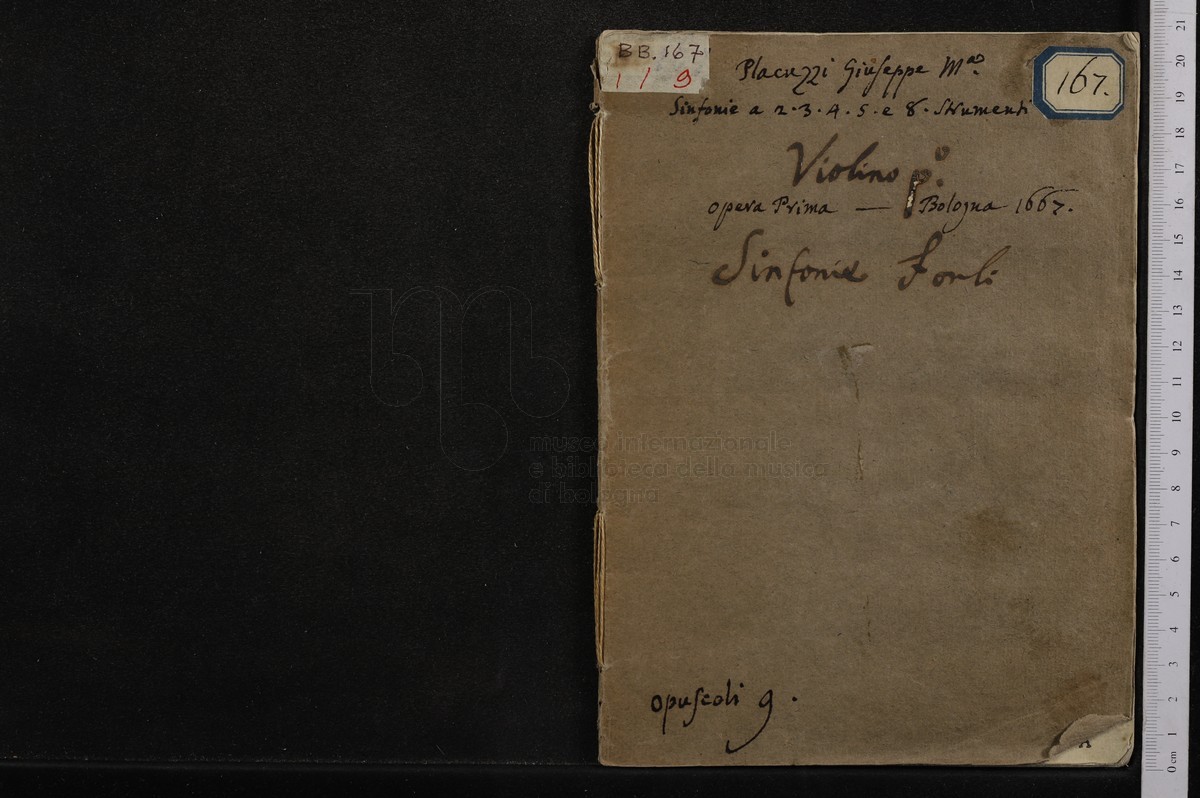 BB.167
1/9
Placuzzi Giuseppe Mª.
167.
Sinfonie a 2. 3. 4. 5. e 8. Strumenti
Violino pº.
opera Prima — Bologna 1667.
Sinfonie Forli
museo internazionale
e biblioteca della musica
di bologna
opuscoli 9.
21
20
19
18
17
16
15
14
13
12
11
10
9
8
7
6
5
4
3
2
1
0 cm